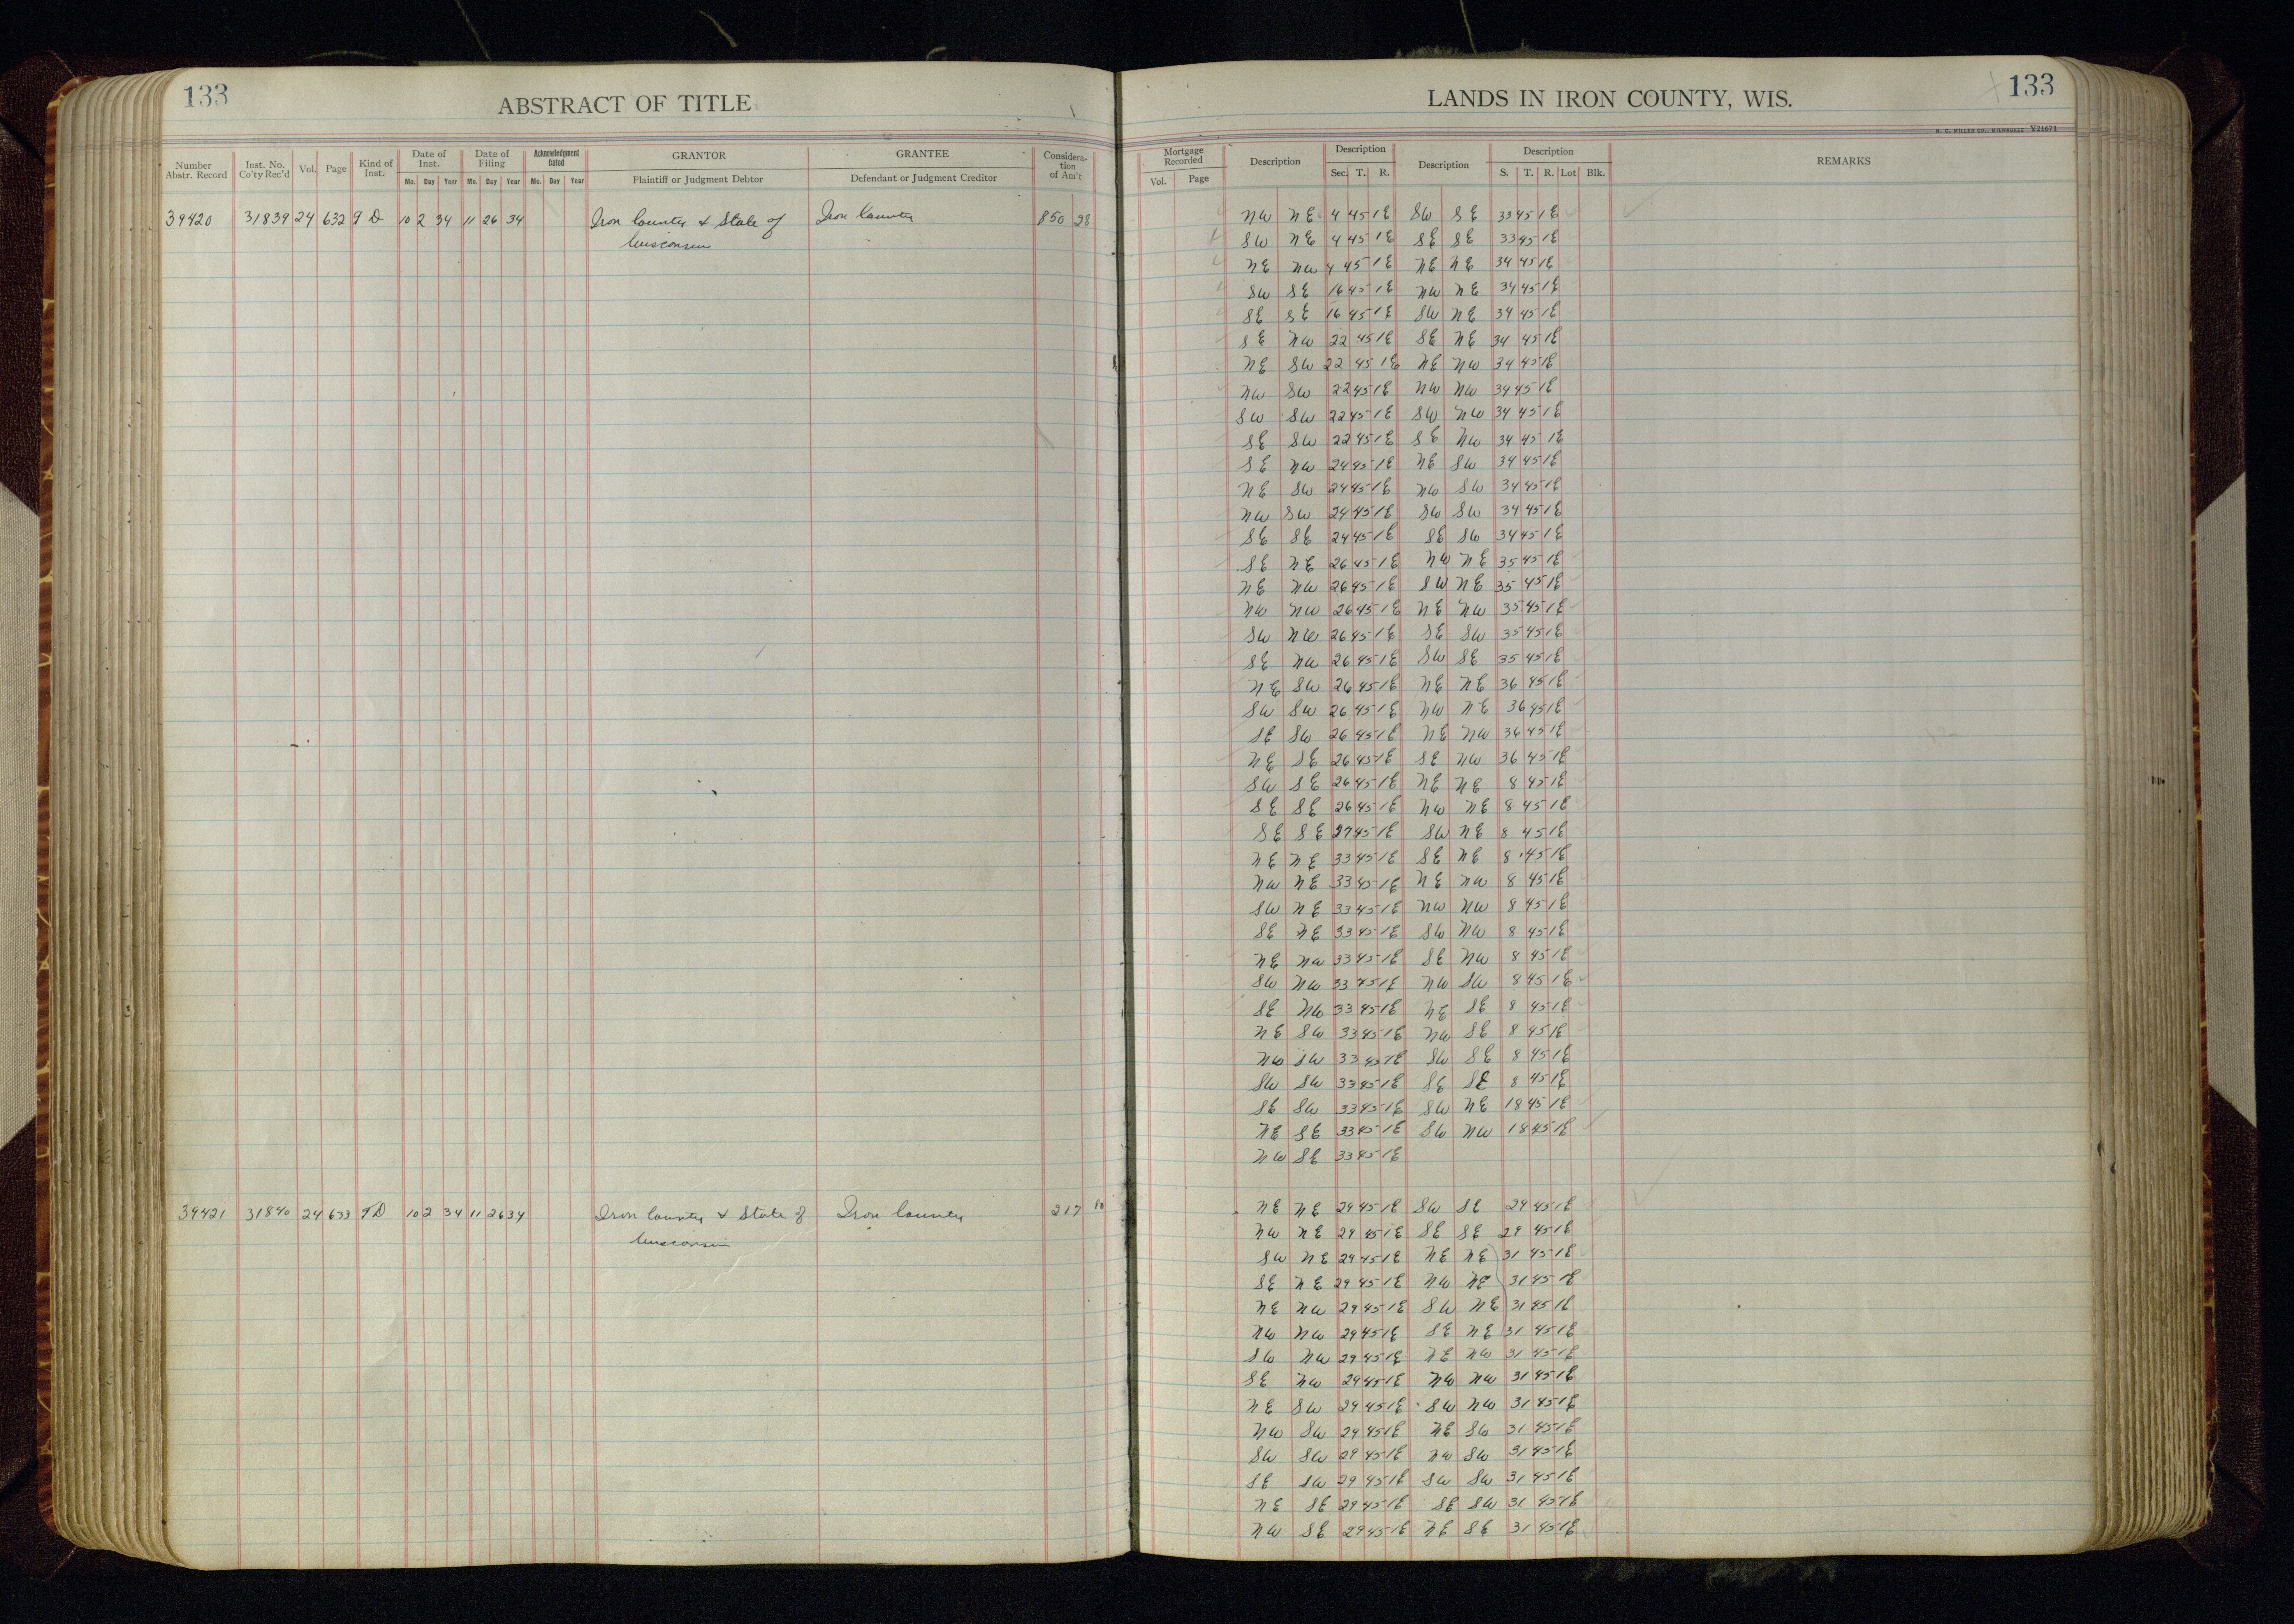 133
ABSTRACT OF TITLE
LANDS IN IRON COUNTY, WIS.
133
H. C. MILLER CO., MILWAUKEE V21671
Number Abstr. Record | Inst. No. Co'ty Rec'd | Vol. | Page | Kind of Inst. | Date of Inst. Mo. Day Year | Date of Filing Mo. Day Year | Acknowledgment Dated Mo. Day Year | GRANTOR Plaintiff or Judgment Debtor | GRANTEE Defendant or Judgment Creditor | Consideration of Am't
Mortgage Recorded Vol. Page | Description | Description Sec. T. R. | Description | Description S. T. R. Lot Blk. | REMARKS
39420 31839 24 632 TD 10 2 34 11 26 34 Iron County & State of Iron County 850 28
Wisconsin
NW NE 4 45 1E SW SE 33 45 1E
SW NE 4 45 1E SE SE 33 45 1E
NE NW 4 45 1E NE NE 34 45 1E
SW SE 16 45 1E NW NE 34 45 1E
SE SE 16 45 1E SW NE 34 45 1E
SE NW 22 45 1E SE NE 34 45 1E
NE SW 22 45 1E NE NW 34 45 1E
NW SW 22 45 1E NW NW 34 45 1E
SW SW 22 45 1E SW NW 34 45 1E
SE SW 22 45 1E SE NW 34 45 1E
SE NW 24 45 1E NE SW 34 45 1E
NE SW 24 45 1E NW SW 34 45 1E
NW SW 24 45 1E SW SW 34 45 1E
SE SE 24 45 1E SE SW 34 45 1E
SE NE 26 45 1E NW NE 35 45 1E
NE NW 26 45 1E SW NE 35 45 1E
NW NW 26 45 1E NE NW 35 45 1E
SW NW 26 45 1E SE SW 35 45 1E
SE NW 26 45 1E SW SE 35 45 1E
NE SW 26 45 1E NE NE 36 45 1E
SW SW 26 45 1E NW NE 36 45 1E
SE SW 26 45 1E NE NW 36 45 1E
NE SE 26 45 1E SE NW 36 45 1E
SW SE 26 45 1E NE NE 8 45 1E
SE SE 26 45 1E NW NE 8 45 1E
SE SE 27 45 1E SW NE 8 45 1E
NE NE 33 45 1E SE NE 8 45 1E
NW NE 33 45 1E NE NW 8 45 1E
SW NE 33 45 1E NW NW 8 45 1E
SE NE 33 45 1E SW NW 8 45 1E
NE NW 33 45 1E SE NW 8 45 1E
SW NW 33 45 1E NW SW 8 45 1E
SE NW 33 45 1E NE SE 8 45 1E
NE SW 33 45 1E NW SE 8 45 1E
NW SW 33 45 1E SW SE 8 45 1E
SW SW 33 45 1E SE SE 8 45 1E
SE SW 33 45 1E SW NE 18 45 1E
NE SE 33 45 1E SW NW 18 45 1E
NW SE 33 45 1E
39421 31840 24 633 TD 10 2 34 11 26 34 Iron County & State of Iron County 217 80
Wisconsin
NE NE 29 45 1E SW SE 29 45 1E
NW NE 29 45 1E SE SE 29 45 1E
SW NE 29 45 1E NE NE 31 45 1E
SE NE 29 45 1E NW NE 31 45 1E
NE NW 29 45 1E SW NE 31 45 1E
NW NW 29 45 1E SE NE 31 45 1E
SW NW 29 45 1E NE NW 31 45 1E
SE NW 29 45 1E NW NW 31 45 1E
NE SW 29 45 1E SW NW 31 45 1E
NW SW 29 45 1E NE SW 31 45 1E
SW SW 29 45 1E NW SW 31 45 1E
SE SW 29 45 1E SW SW 31 45 1E
NE SE 29 45 1E SE SW 31 45 1E
NW SE 29 45 1E NE SE 31 45 1E